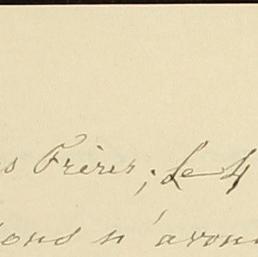 s Frères ; Le 4
ous n'avons